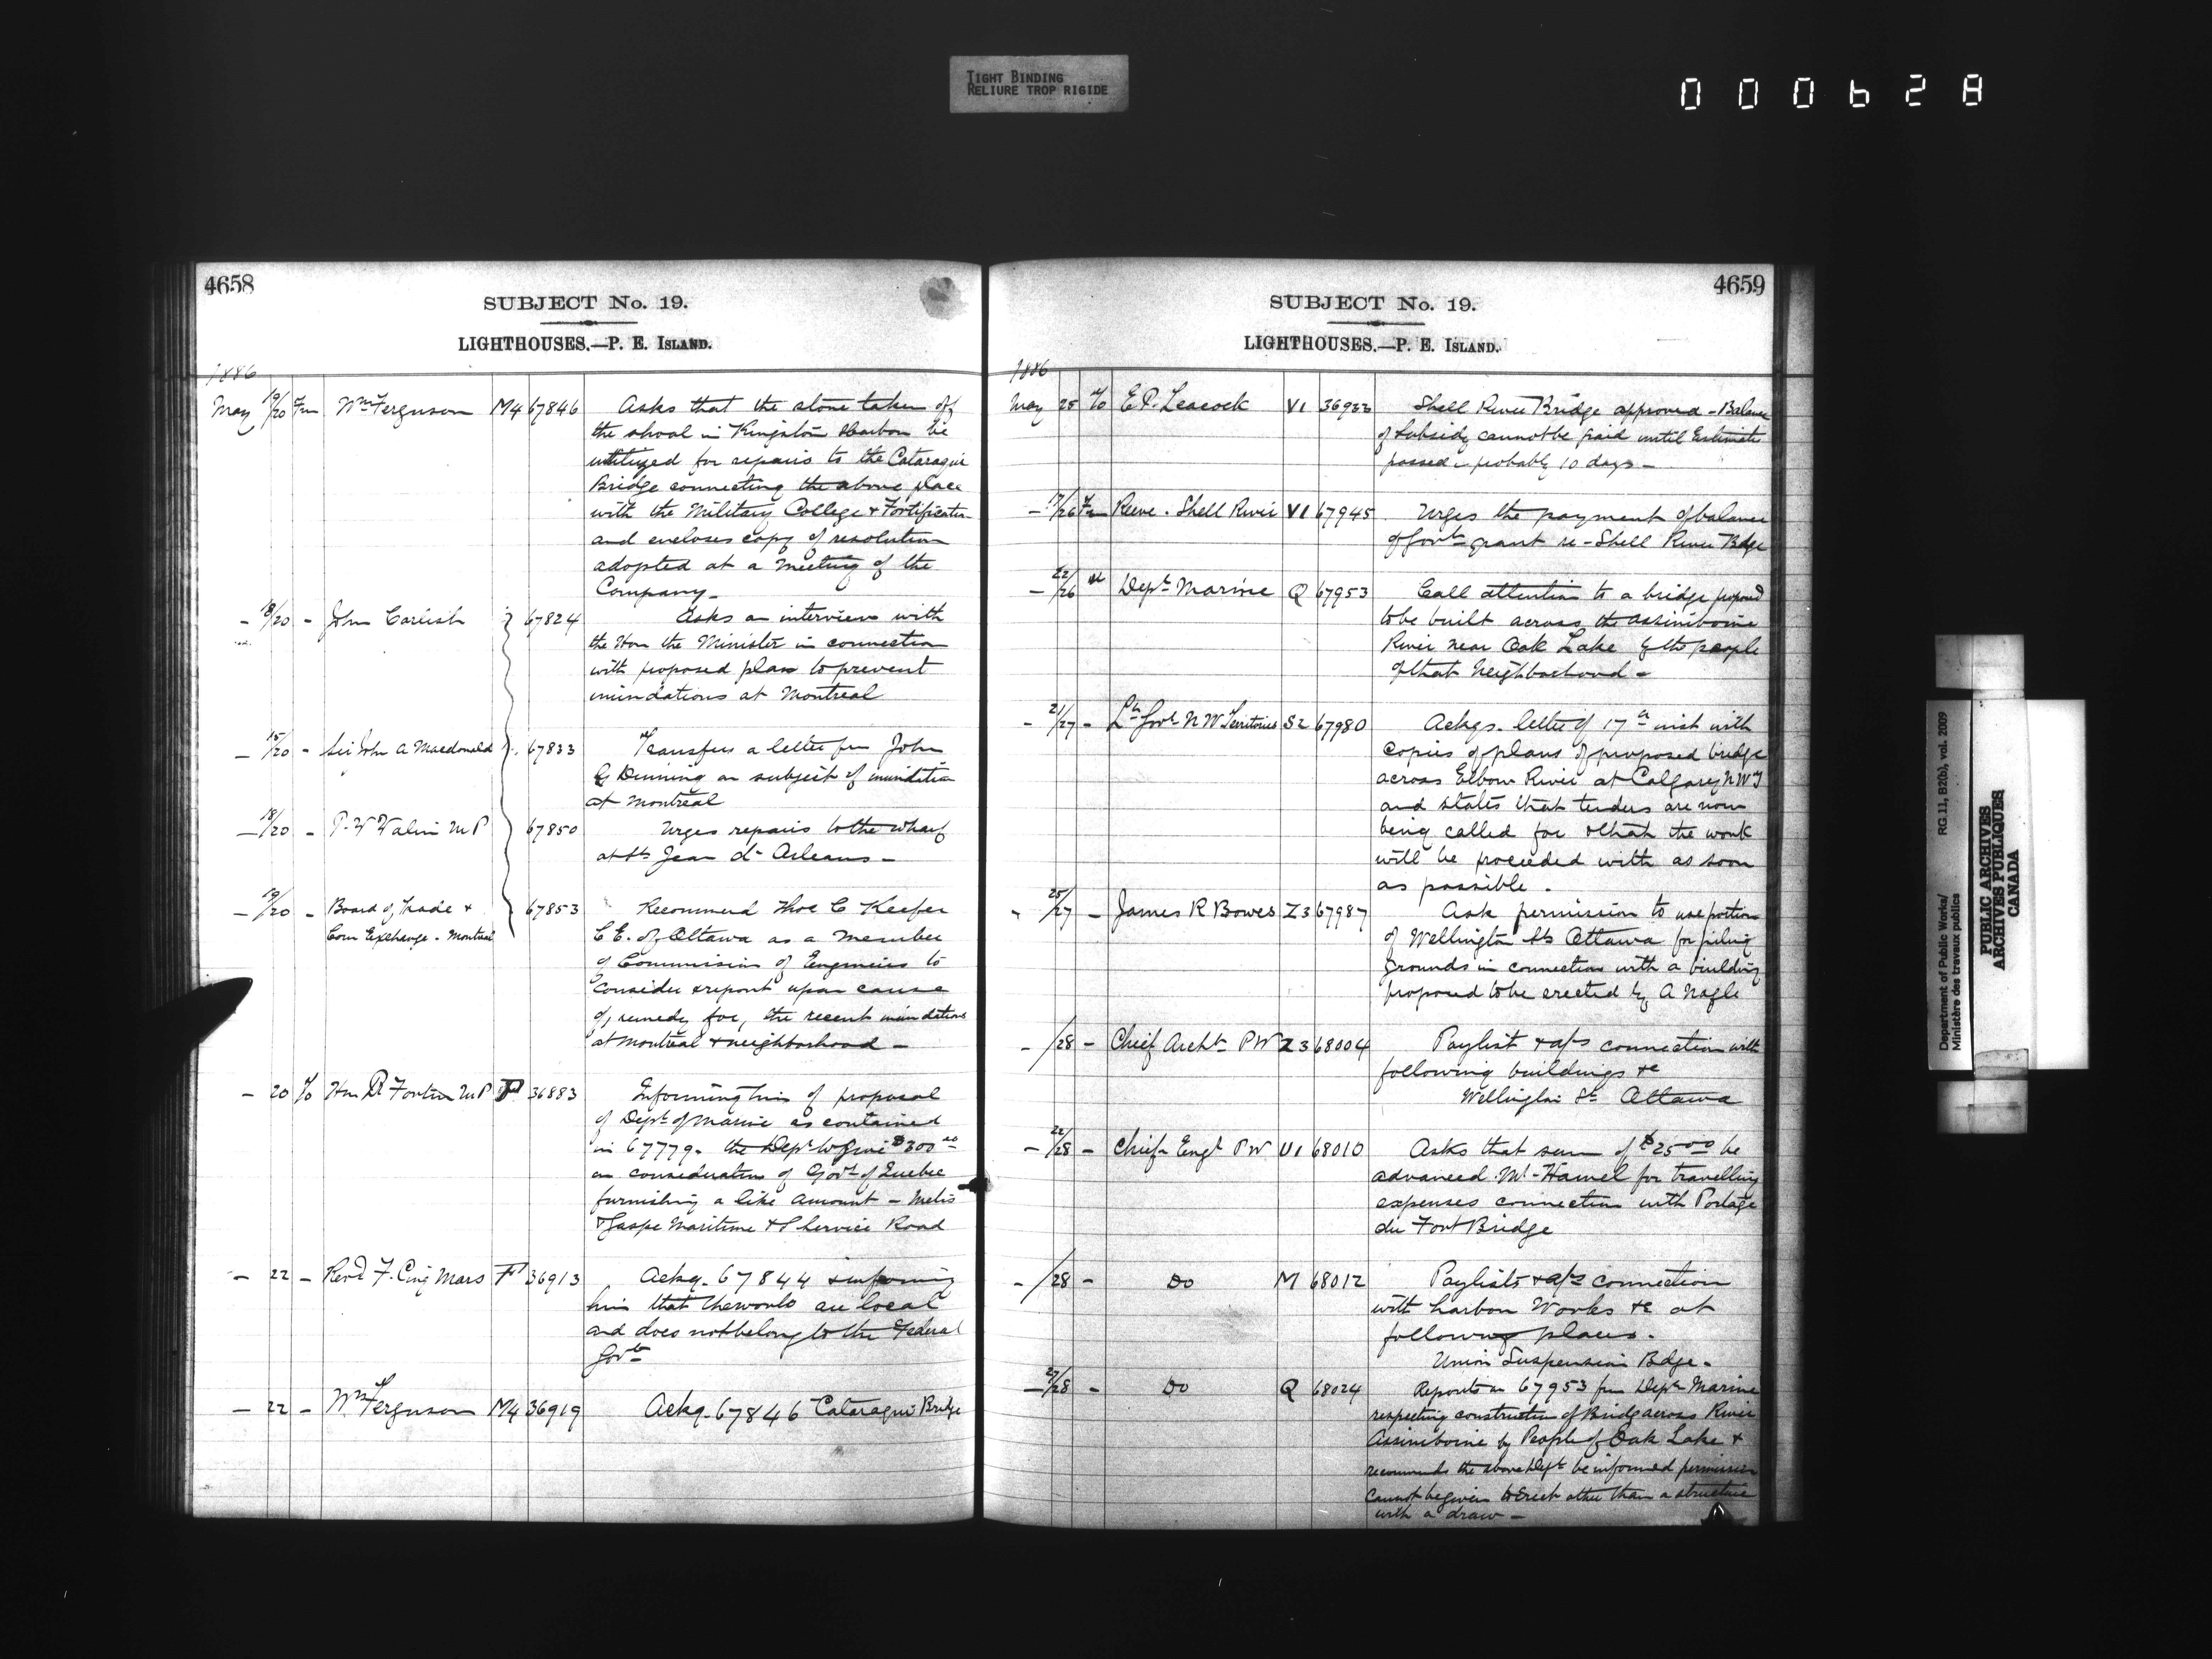 TIGHT BINDING
RELIURE TROP RIGIDE
000628
4658
SUBJECT No. 19.
LIGHTHOUSES.—P. E. ISLAND.
1886
May 19/20 Fm Wm Ferguson M4 67846 Asks that the stone taken off
the shoal in Kingston Harbor be
utilized for repairs to the Cataraqui
Bridge connecting the above place
with the Military College & Fortification
and encloses copy of resolution
adopted at a meeting of the
Company_
- 18/20 - John Carlish 67824 Asks an interview with
the Hon the Minister in connection
with proposed plan to prevent
inundations at Montreal
- 15/20 - Sir John A Macdonald 67833 Transfers a letter fm John
G Dinning on subject of inundation
at Montreal
- 18/20 - P. V Valin M P 67850 Urges repairs to the wharf
at St Jean d' Orleans -
- 19/20 - Board of Trade & 67853 Recommend Thos C Keefer
Corn Exchange - Montreal C E. of Ottawa as a member
of Commission of Engineers to
consider & report upon cause
of, remedy for, the recent inundations
at Montreal & neighborhood -
- 20 To Hon P Fortin M P F 36883 Informing him of proposal
of Dept of Marine as contained
in 67779. the Dept to give $300 00
on consideration of Govt of Quebec
furnishing a like amount - Metis
& Gaspe Maritime & S Service Road
- 22 - Revd F. Cinq Mars F 36913 Ackg. 67844 & informing
him that the works are local
and does not belong to the Federal
Govt
- 22 - Wm Ferguson M4 36919 Ackg. 67846 Cataraqui Bridge
4659
SUBJECT No. 19.
LIGHTHOUSES.—P. E. ISLAND.
1886
May 25 To E P. Leacock V1 36933 Shell River Bridge approved - Balance
of Subsidy cannot be paid until Estimates
passed - probably 10 days -
- 17/26 Fm Reeve. Shell River V1 67945 Urges the payment of balance
of Govt grant re - Shell River Bdge
- 22/26 Dept Marine Q 67953 Call attention to a bridge proposed
to be built across the Assiniboine
River near Oak Lake by the people
of that Neighborhood -
- 21/27 - Lt Govr N W Territories S2 67980 Ackgs. letter of 17th inst with
copies of plans of proposed bridge
across Elbow River at Calgary N W T
and states that tenders are now
being called for & that the work
will be proceeded with as soon
as possible.
- 25/27 - James R Bowes Z3 67987 Ask permission to use portion
of Wellington St Ottawa for piling
grounds in connection with a building
proposed to be erected by A Nagle
- /28 - Chief Archt P W Z3 68004 Paylist & a/cs connection with
following buildings &c
Wellington St Ottawa
- 22/28 - Chief Engr P W U1 68010 Asks that sum of $25 00 be
advanced Mr Hamel for travelling
expenses connection with Portage
du Fort Bridge
- /28 - Do M 68012 Paylists & a/cs connection
with harbor Works &c at
following places.
Union Suspension Bdge.
- 27/28 - Do Q 68024 Reports on 67953 from Dept Marine
respecting construction of Bridge across River
Assiniboine by People of Oak Lake &
recommends the above Dept be informed permission
cannot be given to Erect other than a structure
with a draw -
Department of Public Works/
Ministère des travaux publics
RG 11, B2(b), vol. 2009
PUBLIC ARCHIVES
ARCHIVES PUBLIQUES
CANADA